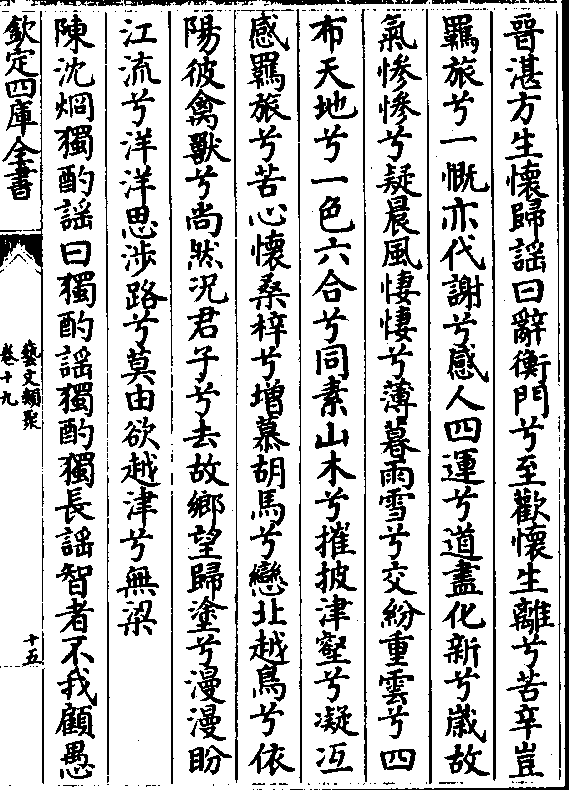 晉湛方生懷歸謡曰辭衡門兮至歡懷生離兮苦辛豈
羈旅兮一慨亦代謝兮感人四運兮道盡化新兮嵗故
氣慘慘兮凝晨風悽悽兮薄暮雨雪兮交紛重雲兮四
布天地兮一色六合兮同素山木兮摧披津壑兮凝冱
感羈旅兮苦心懷桑梓兮增慕胡馬兮戀北越鳥兮依
陽彼禽獸兮尚然況君子兮去故鄉望歸塗兮漫漫盼
江流兮洋洋思涉路兮莫由欲越津兮無梁
陳沈烱獨酌謡曰獨酌謡獨酌獨長謡智者不我顧愚
欽定四庫全書
藝文類聚
卷十九
十五